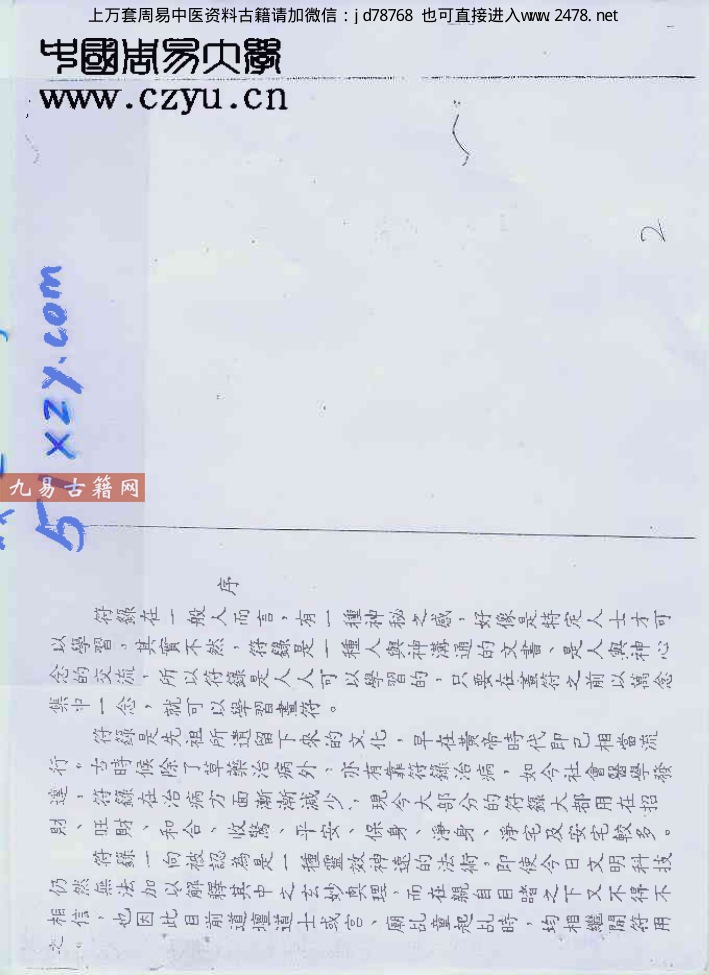 上万套周易中医资料古籍请加微信：jd78768 也可直接进入www.2478.net
中國周易大學
www.czyu.cn
2
51xzy.com
九易古籍网
序
符籙在一般人而言，有一種神秘之感，好像是特定人士才可
以學習，其實不然，符籙是一種人與神溝通的文書、是人與神心
念的交流，所以符籙是人人可以學習的，只要在畫符之前以萬念
集中一念，就可以學習畫符。
符籙是先祖所遺留下來的文化，早在黃帝時代即已相當流
行。古時候除了草藥治病外，亦有靠符籙治病，如今社會醫學發
達，符籙在治病方面漸漸減少，現今大部分的符籙大都用在招
財、旺財、和合、收驚、平安、保身、淨身、淨宅及安宅較多。
符籙一向被認為是一種靈效神速的法術，即使今日文明科技
仍然無法加以解釋其中之玄妙奧理，而在親自目睹之下又不得不
相信，也因此目前道壇道士或宮、廟乩童起乩時，均相繼開符用
之。